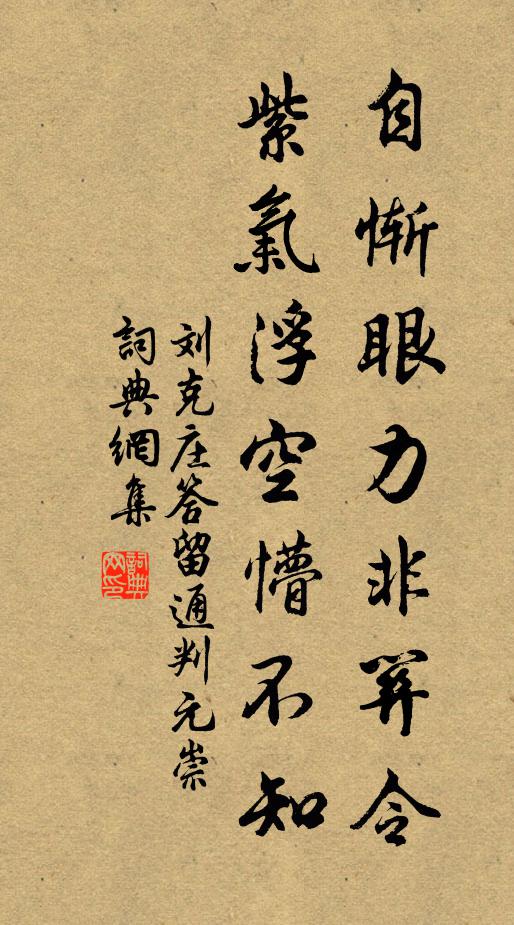 自慚眼力非關令
紫氣浮空懵不知
刘克庄答留通判元崇
詞典網集
詞典网印